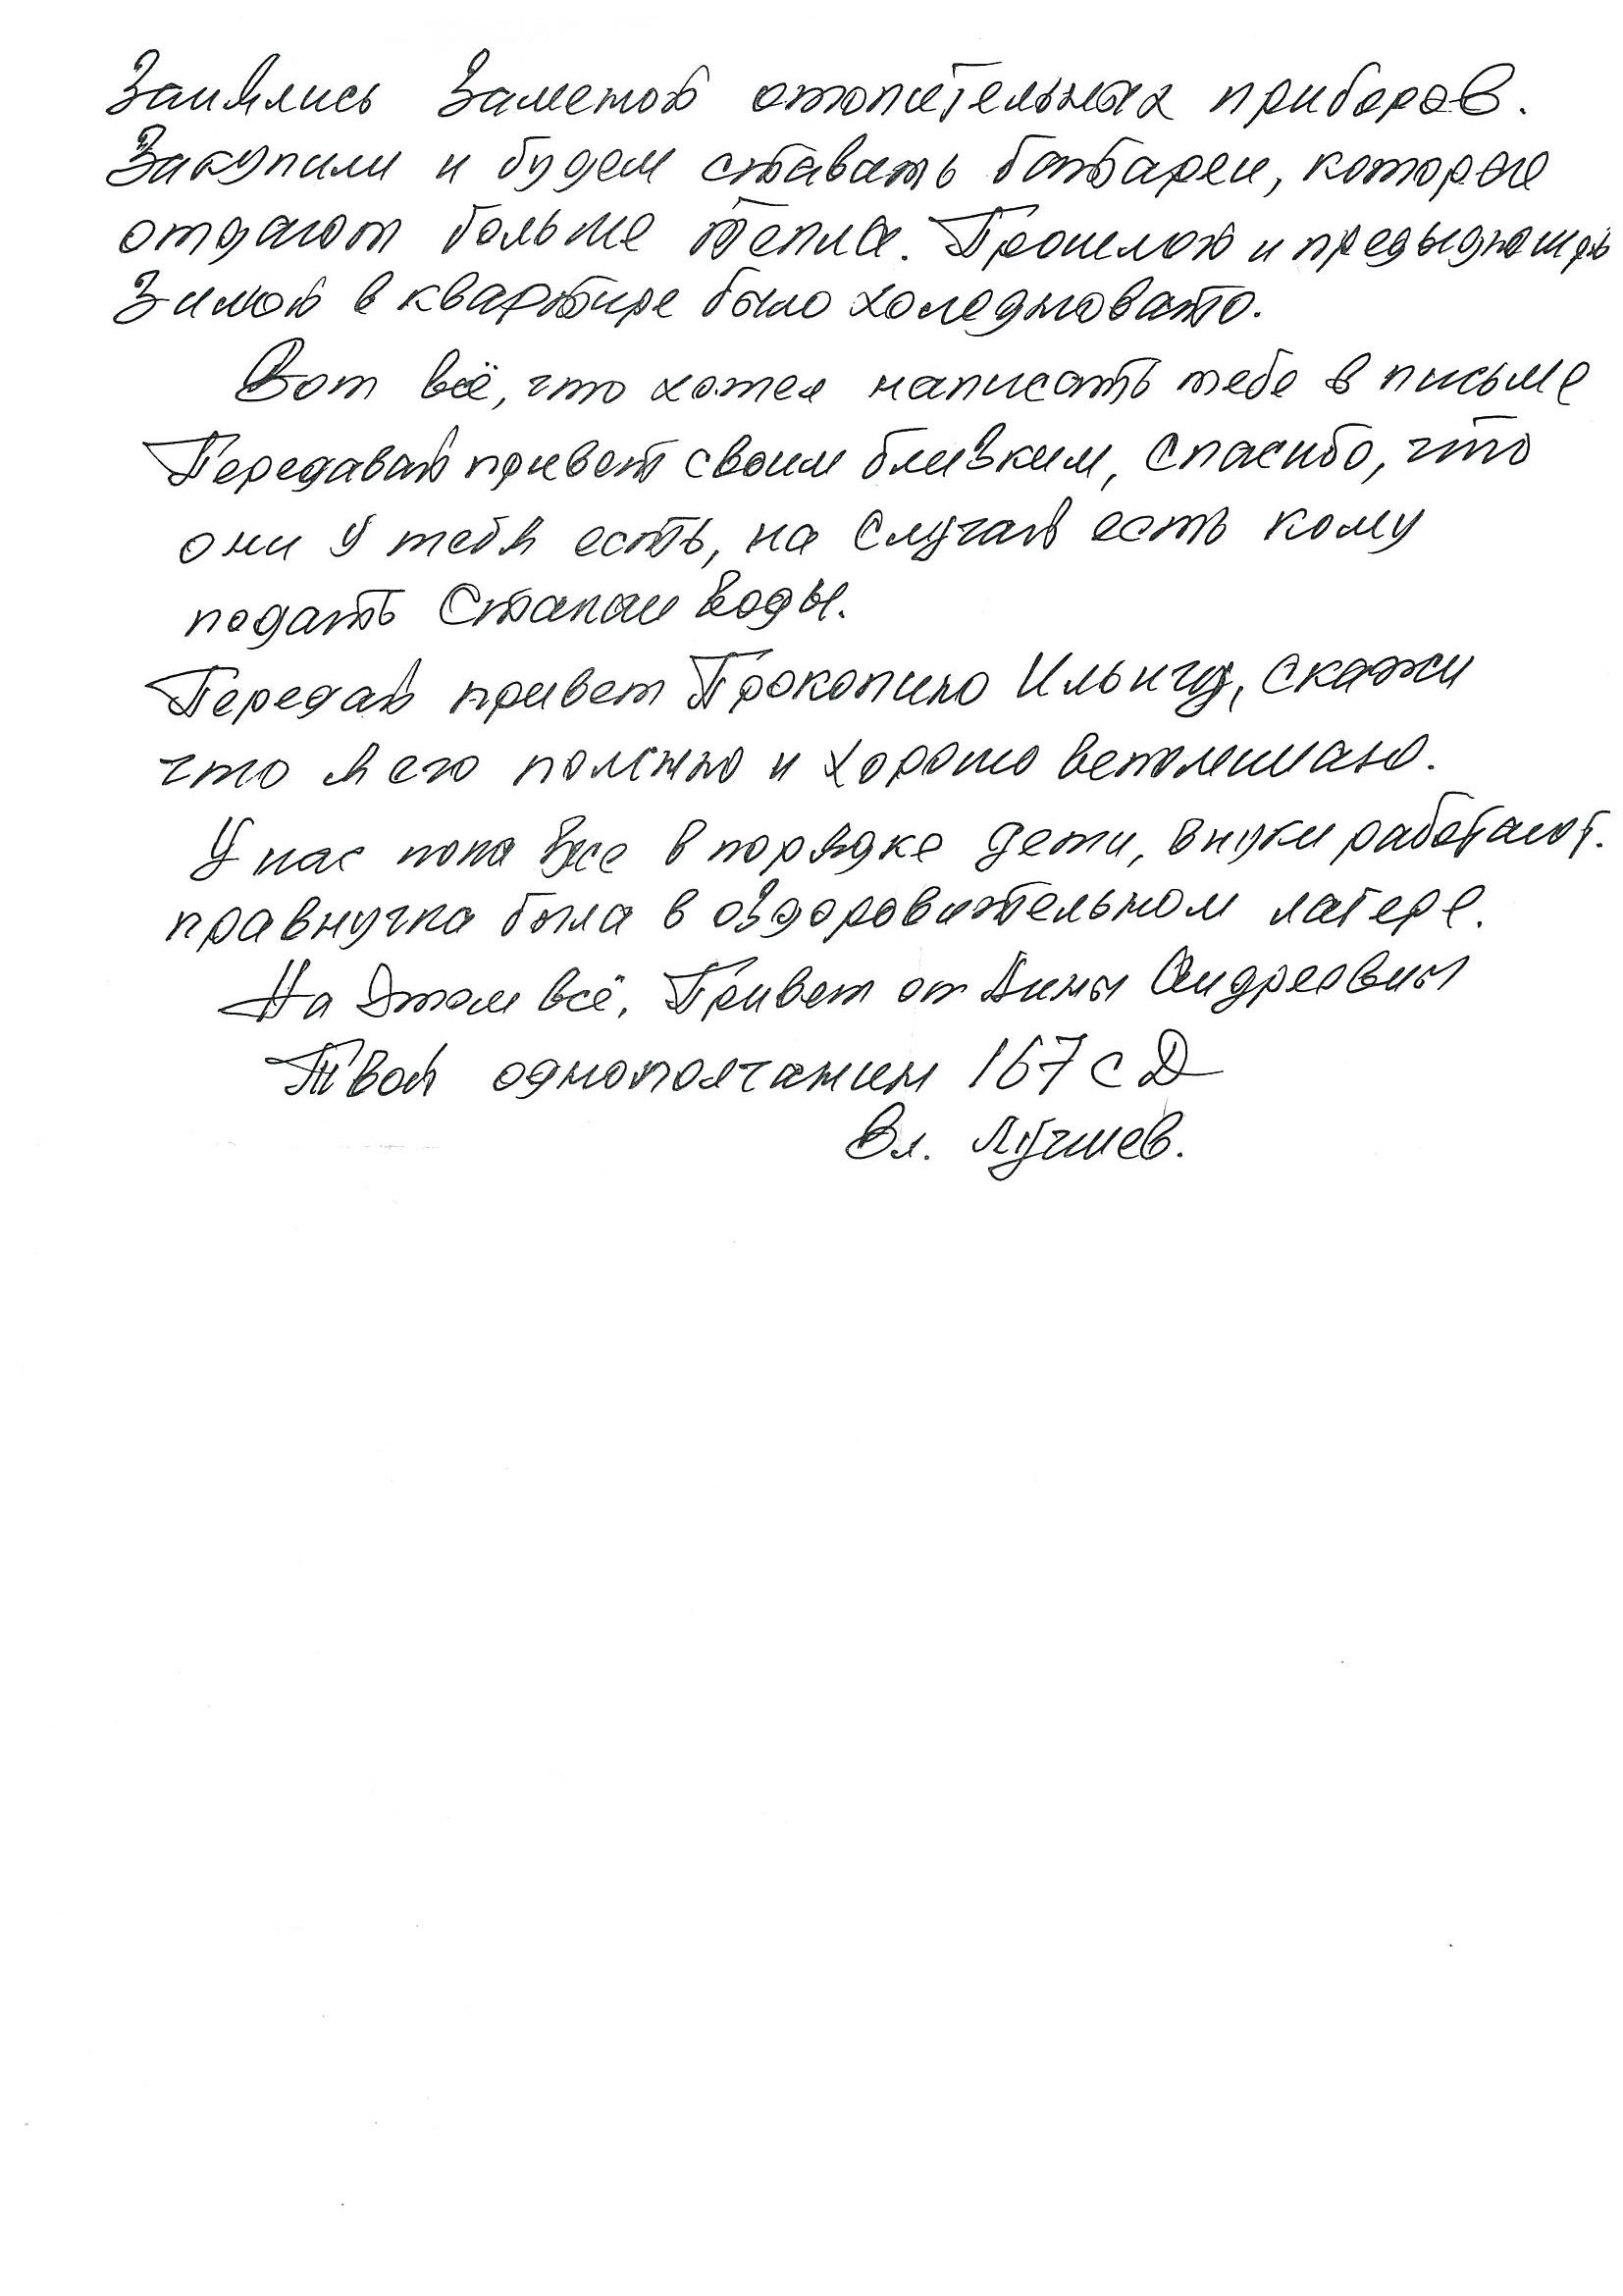 Занялись заменой отопительных приборов.
Закупили и будем ставать батареи, которые
отдают больше тепла. Прошлой и предыдущей
зимой в квартире было холодновато.
Вот всё, что хотел написать тебе в письме
Передавай привет своим близким, спасибо, что
они у тебя есть, на случай есть кому
подать стакан воды.
Передай привет Прокопию Ильичу, скажи
что я его помню и хорошо вспоминаю.
У нас пока все в порядке дети, внуки работают.
правнучка была в оздоровительном лагере.
На этом всё. Привет от Андреевны
Твой однополчанин 167 сД
Вл.